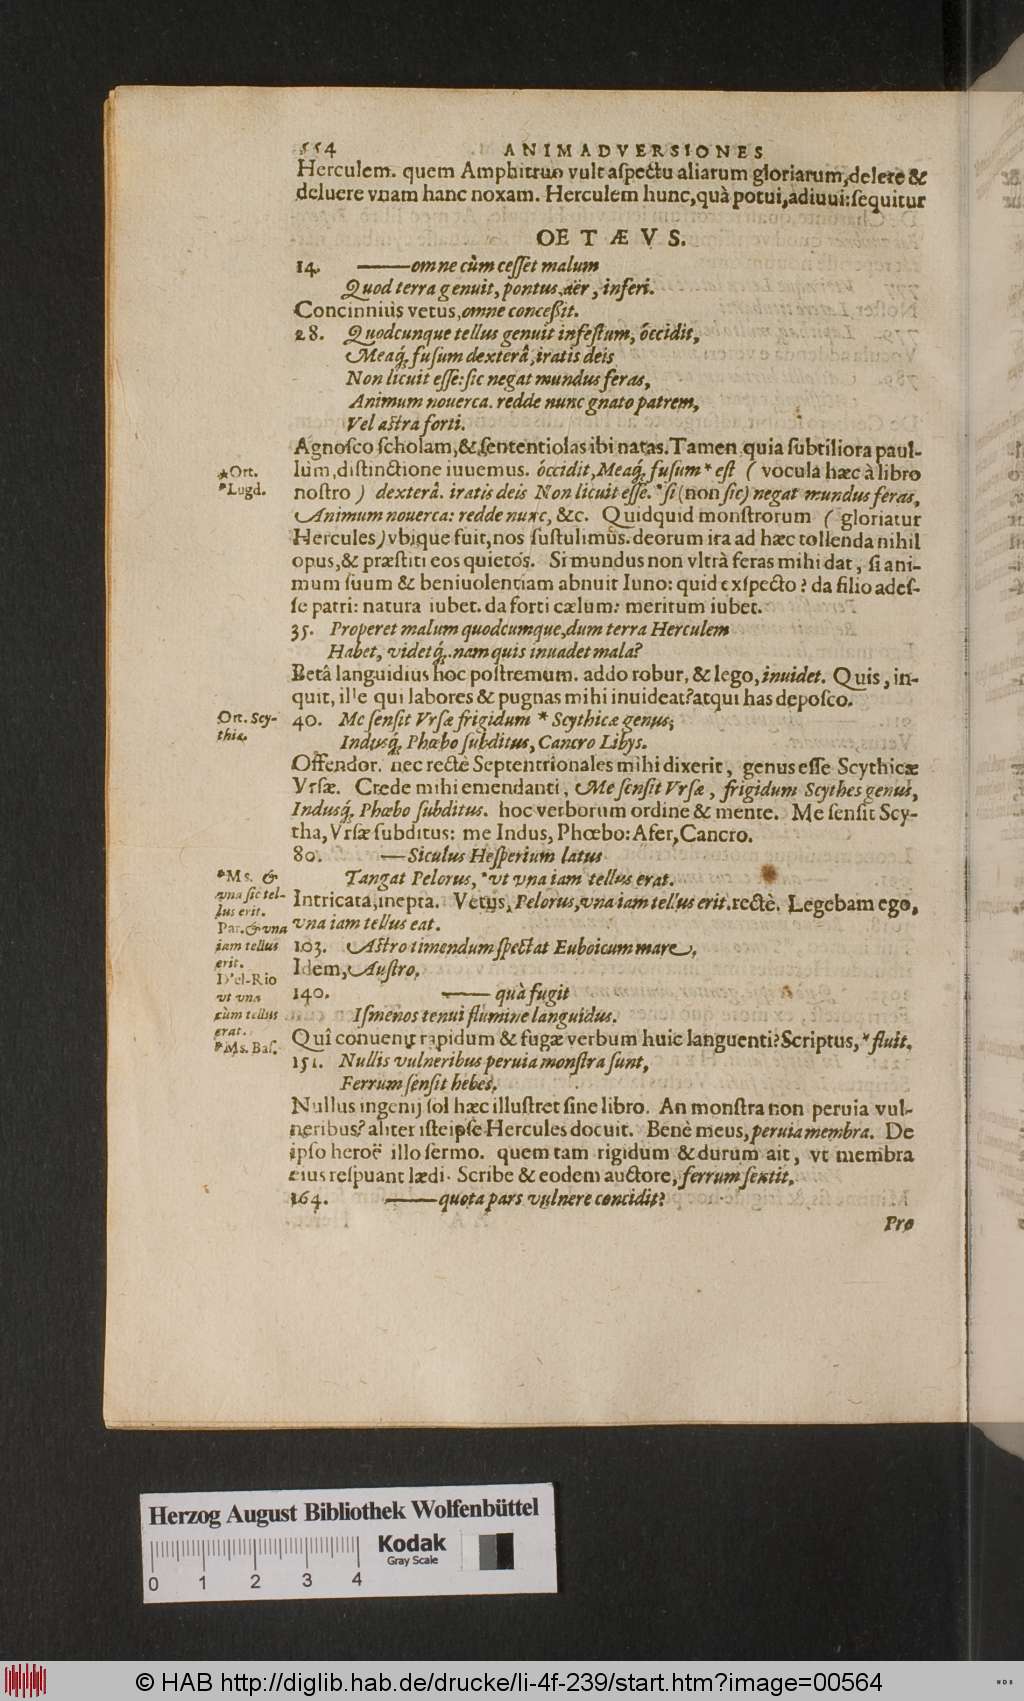 554 ANIMADVERSIONES
Herculem. quem Amphitruo vult aſpectu aliarum gloriarum, delere &
deluere vnam hanc noxam. Herculem hunc, quà potui, adiuui: ſequitur
OETÆVS.
14. ——omne cùm ceſſet malum
Quod terra genuit, pontus, aër, inferi.
Concinniùs vetus, omne conceßit.
28. Quodcunque tellus genuit infeſtum, óccidit,
Meaq́; fuſum dexterâ, iratis deis
Non licuit eſſe: ſic negat mundus feras,
Animum nouerca. redde nunc gnato patrem,
Vel aſtra forti.
Agnoſco ſcholam, & ſententiolas ibi natas. Tamen quia ſubtiliora paul-
lùm, diſtinctione iuuemus. óccidit, Meaq́; fuſum * eſt ( vocula hæc à libro
nostro ) dexterâ. iratis deis Non licuit eſſe. * ſi (non ſic) negat mundus feras,
Animum nouerca: redde nunc, &c. Quidquid monſtrorum ( gloriatur
Hercules) vbique fuit, nos ſuſtulimùs. deorum ira ad hæc tollenda nihil
opus, & præſtiti eos quietos. Si mundus non vltrà feras mihi dat, ſi ani-
mum ſuum & beniuolentiam abnuit Iuno: quid exſpecto? da filio adeſ-
ſe patri: natura iubet. da forti cælum: meritum iubet.
35. Properet malum quodcumque, dum terra Herculem
Habet, videtq́;. nam quis inuadet mala?
Betâ languidius hoc poſtremum. addo robur, & lego, inuidet. Quis, in-
quit, ille qui labores & pugnas mihi inuideat? atqui has depoſco.
40. Me ſenſit Vrſæ frigidum * Scythicæ genus;
Indusq́; Phœbo ſubditus, Cancro Libys.
Offendor. nec rectè Septentrionales mihi dixerit, genus eſſe Scythicæ
Vrſæ. Crede mihi emendanti, Me ſenſit Vrſæ, frigidum Scythes genus,
Indusq́; Phœbo ſubditus. hoc verborum ordine & mente. Me ſenſit Scy-
tha, Vrſæ ſubditus: me Indus, Phœbo: Afer, Cancro.
80. —Siculus Heſperium latus
Tangat Pelorus, * vt vna iam tellus erat.
Intricata, inepta. Vetus, Pelorus, vna iam tellus erit. rectè. Legebam ego,
vna iam tellus eat.
103. Aſtro timendum ſpectat Euboicum mare.
Idem, Auſtro.
140. —— quà fugit
Iſmenos tenui flumine languidus.
Quî conuenit rapidum & fugæ verbum huic languenti? Scriptus, * fluit.
151. Nullis vulneribus peruia monſtra ſunt,
Ferrum ſenſit hebes.
Nullus ingenij ſol hæc illuſtret ſine libro. An monſtra non peruia vul-
neribus? aliter iſte ipſe Hercules docuit. Benè meus, peruia membra. De
ipſo heroë illo ſermo. quem tam rigidum & durum ait, vt membra
eius reſpuant lædi. Scribe & eodem auctore, ferrum ſentit.
164. ——quota pars vulnere concidit?
Pro
* Ort.
* Lugd.
Ort. Scy-
thiæ.
* Ms. &
vna ſic tel-
lus erit.
Par. & vna
iam tellus
erit.
D'el-Rio
vt vna
cùm tellus
erat.
* Ms. Baſ.
Herzog August Bibliothek Wolfenbüttel
Kodak
Gray Scale
0 1 2 3 4
© HAB http://diglib.hab.de/drucke/li-4f-239/start.htm?image=00564